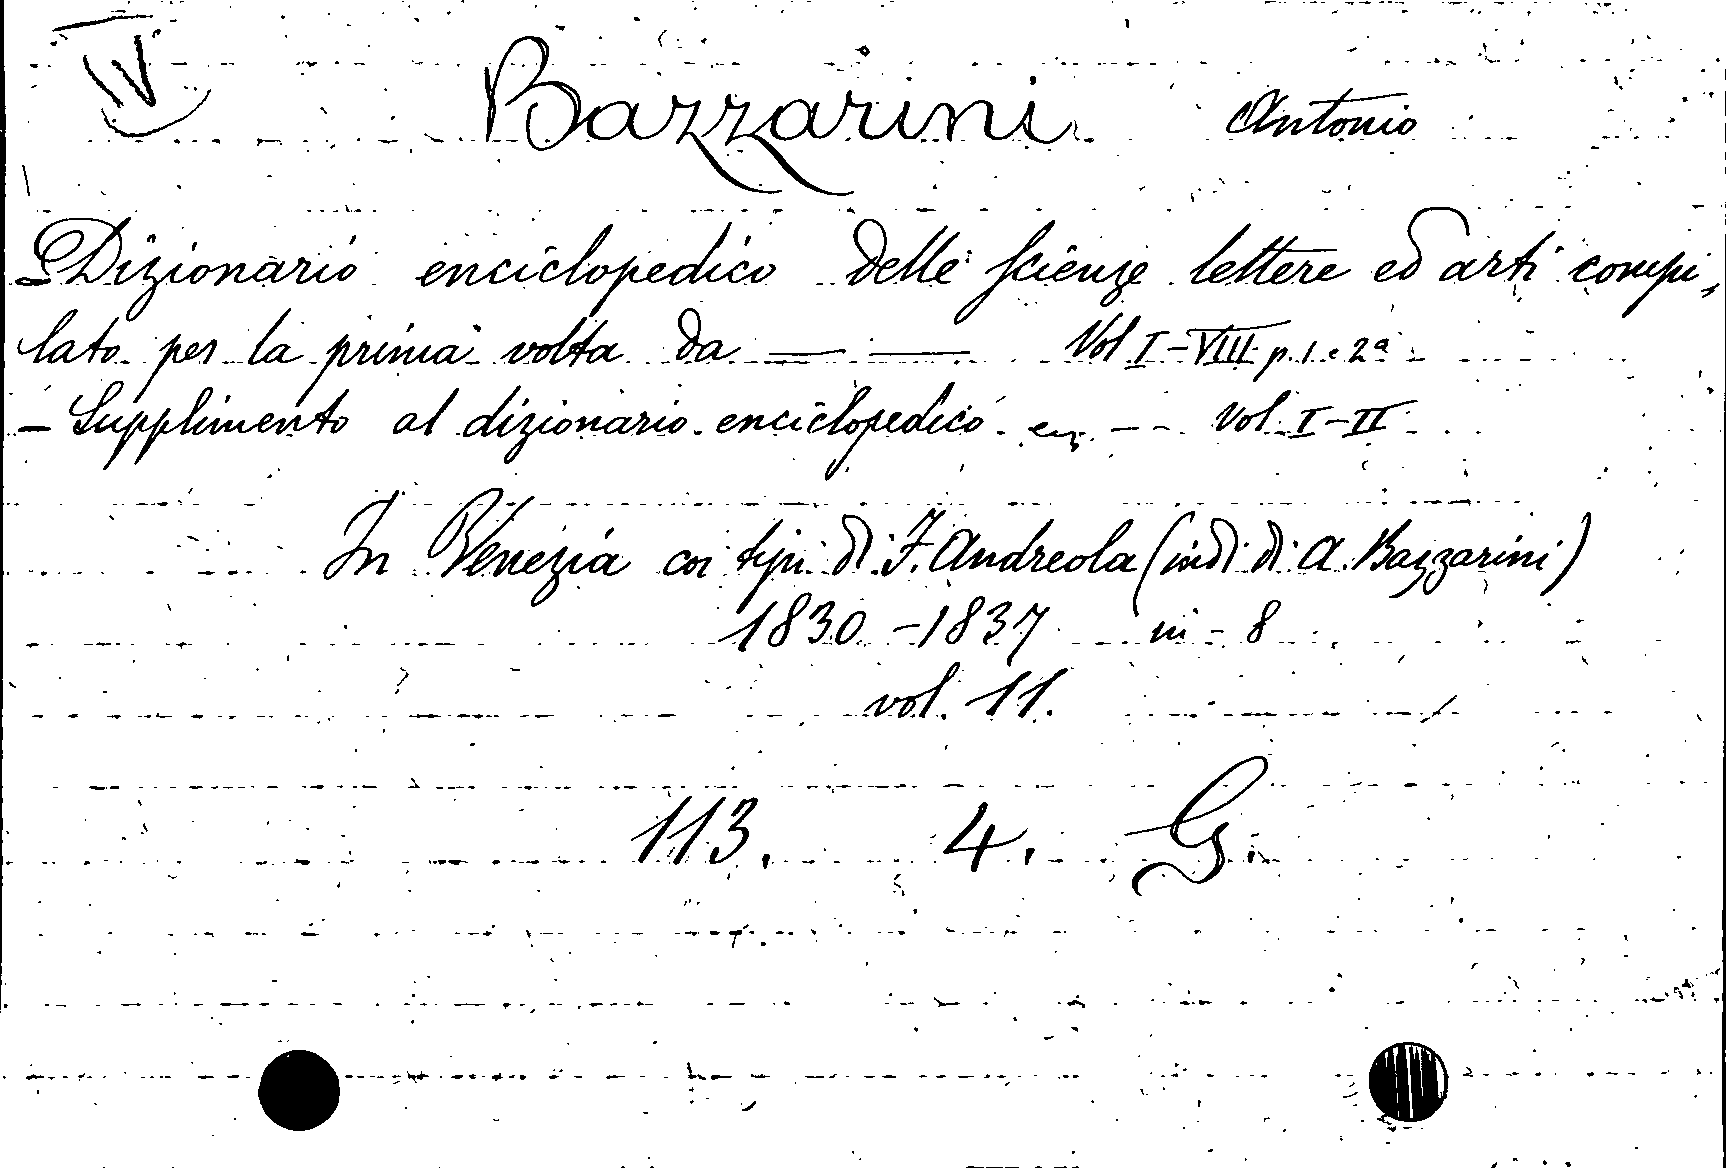 IV
Bazzarini Antonio
Dizionario enciclopedico delle scienze lettere ed arti compi,
lato per la prima volta da — — Vol I-VIII p. 1. e 2ª
- Supplimento al dizionario enciclopedico - - Vol. I-II
In Venezia coi tipi di F. Andreola (indi di A. Bazzarini)
1830 - 1837 in - 8
vol. 11.
113. 4. G.